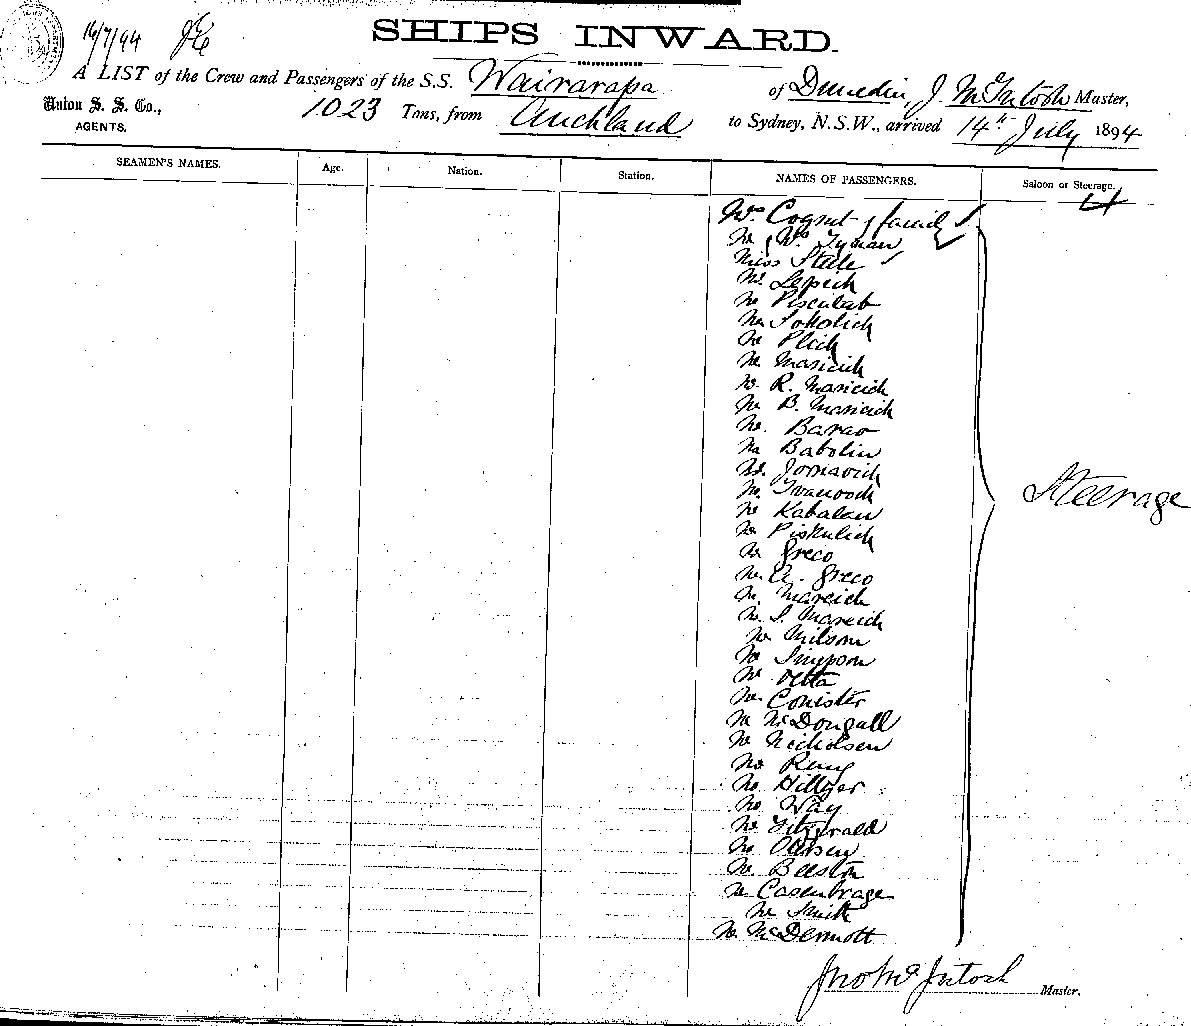 16/7/94
SHIPS INWARD.
A LIST of the Crew and Passengers of the S.S. Wairarapa of Dunedin, J. McIntosh Master,
Union S. S. Co., AGENTS. 1023 Tons, from Auckland to Sydney, N.S.W., arrived 14th July 1894
SEAMEN'S NAMES. Age. Nation. Station. NAMES OF PASSENGERS. Saloon or Steerage.
Mrs Cognet & family
Mr & Mrs Tyman
Miss Steele
Mr Lepich
Mr Pisculab
Mr Sokolich
Mr Plich
Mr Masicich
Mr R. Masicich
Mr B. Masicich
Mr Barao
Mr Babolin
Mr Jomavich
Mr Ivanooch
Mr Kabalan
Mr Piskulich
Mr Greco
Mr A. Greco
Mr Marcich
Mr S. Marcich
Mr Milsom
Mr Simpson
Mr
Mr Conister
Mr McDougall
Mr Nicholsen
Mr
Mr Hillyer
Mr Way
Mr Fitzgerald
Mr Ollsen
Mr Beeston
Mr Casenbrage
Mr Smith
Mr McDermott
Steerage
Jno McIntosh Master.